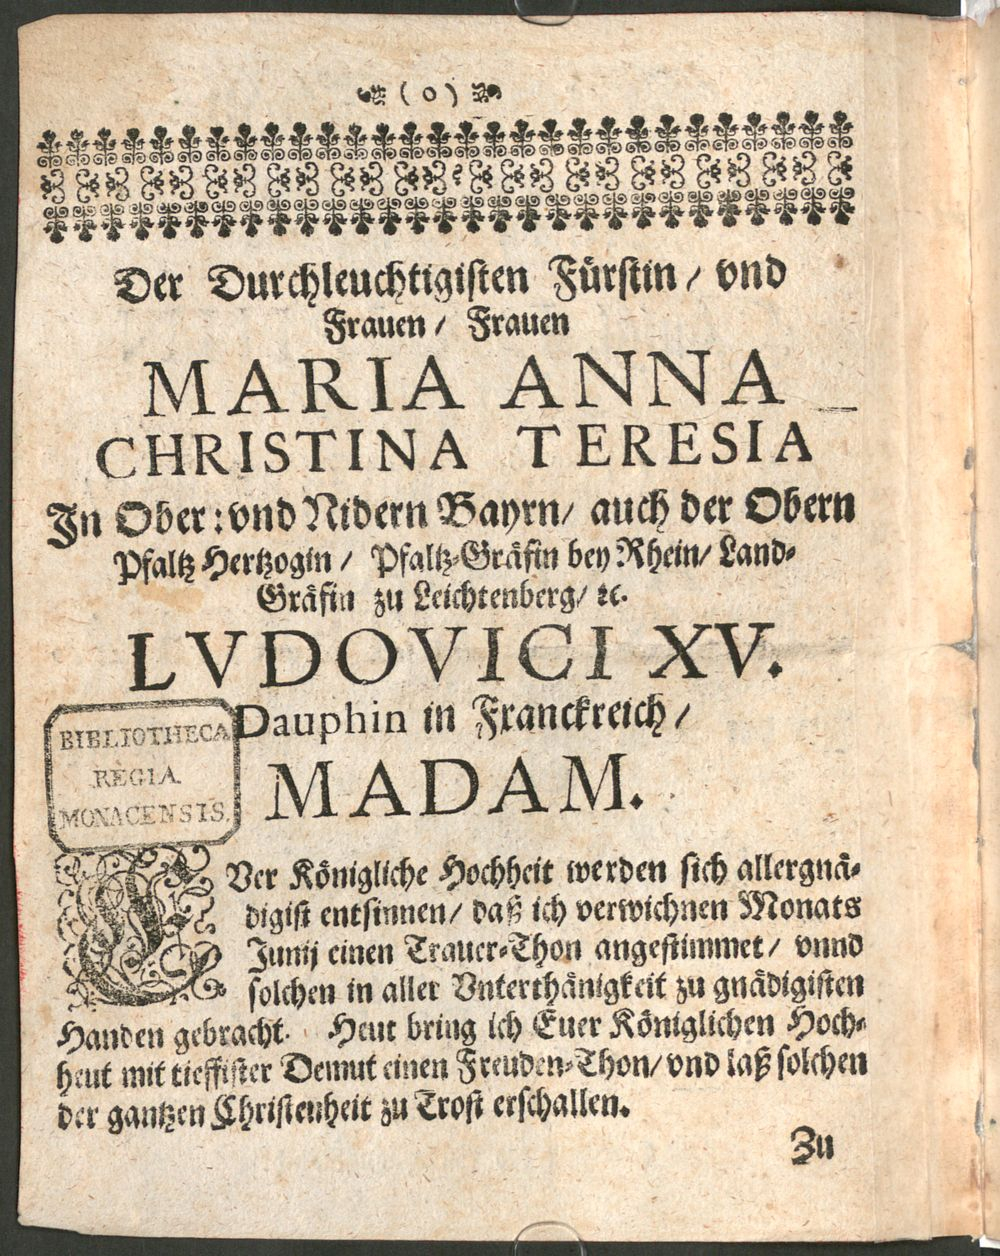 ( o )
Der Durchleuchtigisten Fürstin / vnd
Frauen / Frauen
MARIA ANNA
CHRISTINA TERESIA
In Ober: vnd Nidern Bayrn / auch der Obern
Pfaltz Hertzogin / Pfaltz-Gräfin bey Rhein / Land-
Gräfin zu Leichtenberg / ꝛc.
LVDOVICI XV.
Dauphin in Franckreich /
MADAM.
BIBLIOTHECA
REGIA
MONACENSIS.
EVer Königliche Hochheit werden sich allergnä-
digist entsinnen / daß ich verwichnen Monats
Junij einen Trauer-Thon angestimmet / vnnd
solchen in aller Vnterthänigkeit zu gnädigisten
Handen gebracht. Heut bring ich Euer Königlichen Hoch-
heut mit tieffister Demut einen Freuden-Thon / vnd laß solchen
der gantzen Christenheit zu Trost erschallen.
Zu